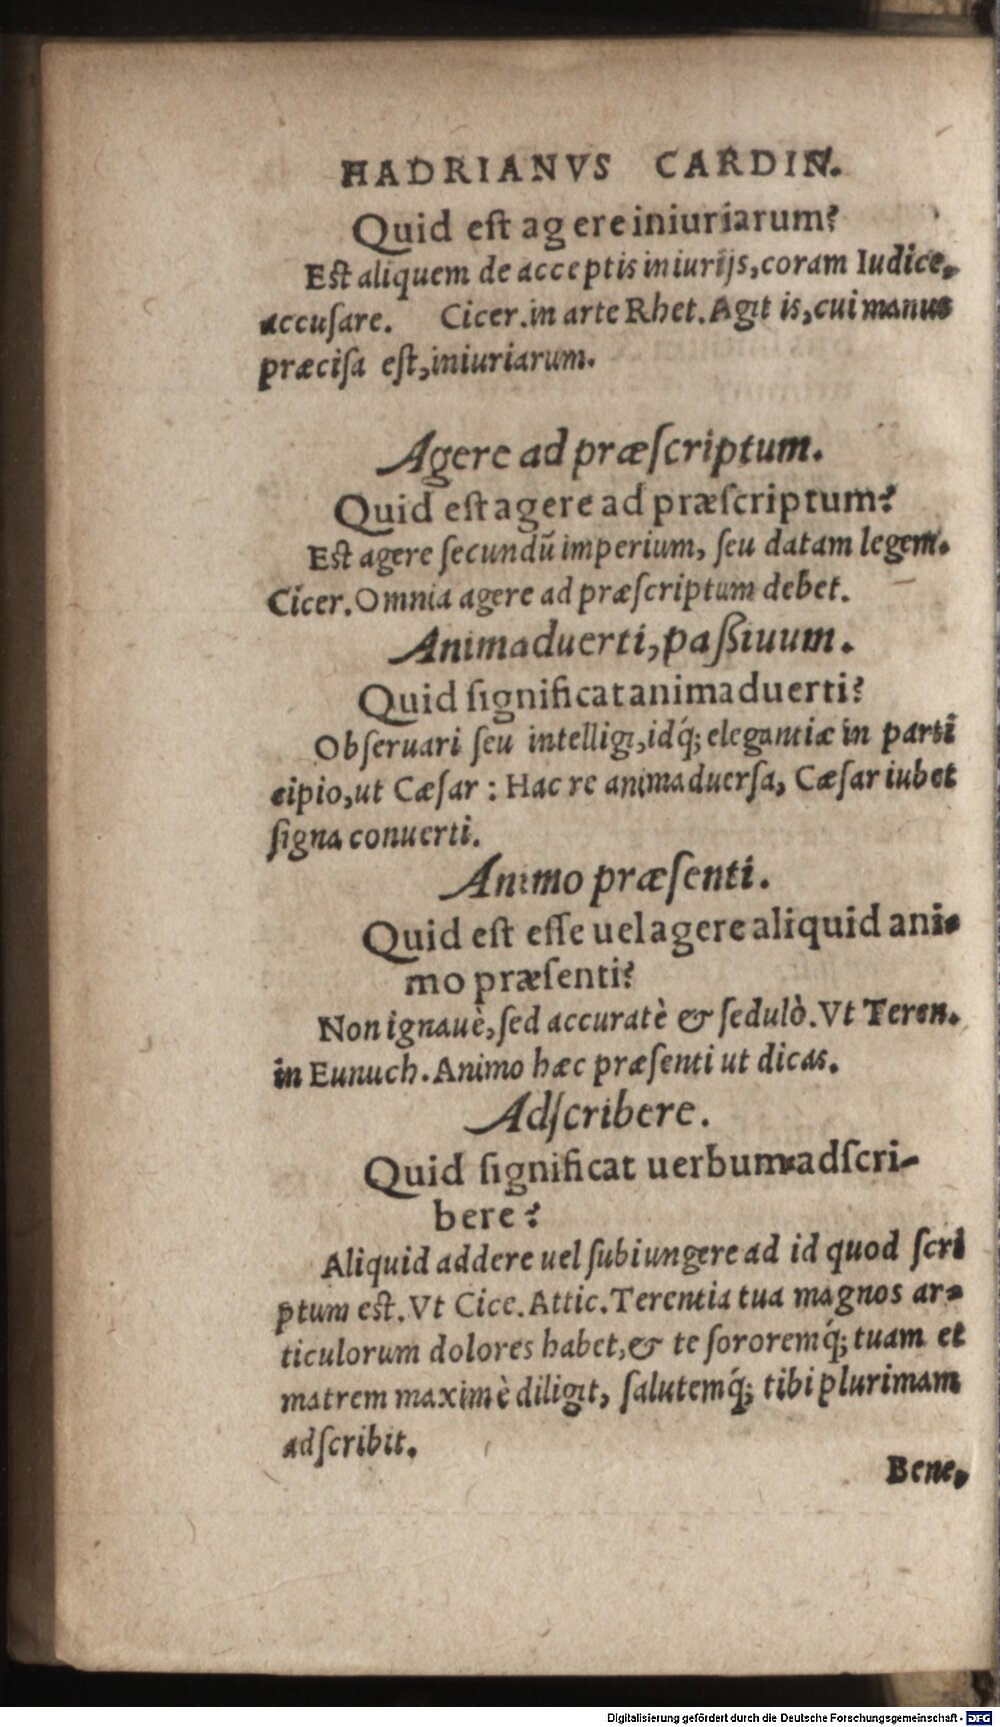 HADRIANVS CARDIN.
Quid est agere iniuriarum?
Est aliquem de acceptis iniurijs, coram Iudice,
accusare. Cicer. in arte Rhet. Agit is, cui manus
præcisa est, iniuriarum.
Agere ad præſcriptum.
Quid eſt agere ad præſcriptum?
Eſt agere ſecundũ imperium, ſeu datam legem.
Cicer. Omnia agere ad præſcriptum debet.
Animaduerti, paſſiuum.
Quid ſignificat animaduerti?
Obſeruari ſeu intelligi, idq́; elegantiæ in parti
cipio, ut Cæſar: Hac re animaduerſa, Cæſar iubet
ſigna conuerti.
Animo præſenti.
Quid eſt eſſe uel agere aliquid ani-
mo præſenti?
Non ignauè, ſed accuratè & ſedulò. Vt Teren.
in Eunuch. Animo hæc præſenti ut dicas.
Adſcribere.
Quid ſignificat uerbum adſcri-
bere?
Aliquid addere uel ſubiungere ad id quod ſcri
ptum eſt. Vt Cice. Attic. Terentia tua magnos ar-
ticulorum dolores habet, & te ſororemq́; tuam et
matrem maximè diligit, ſalutemq́; tibi plurimam
adſcribit.
Bene,
Digitalisierung gefördert durch die Deutsche Forschungsgemeinschaft - DFG